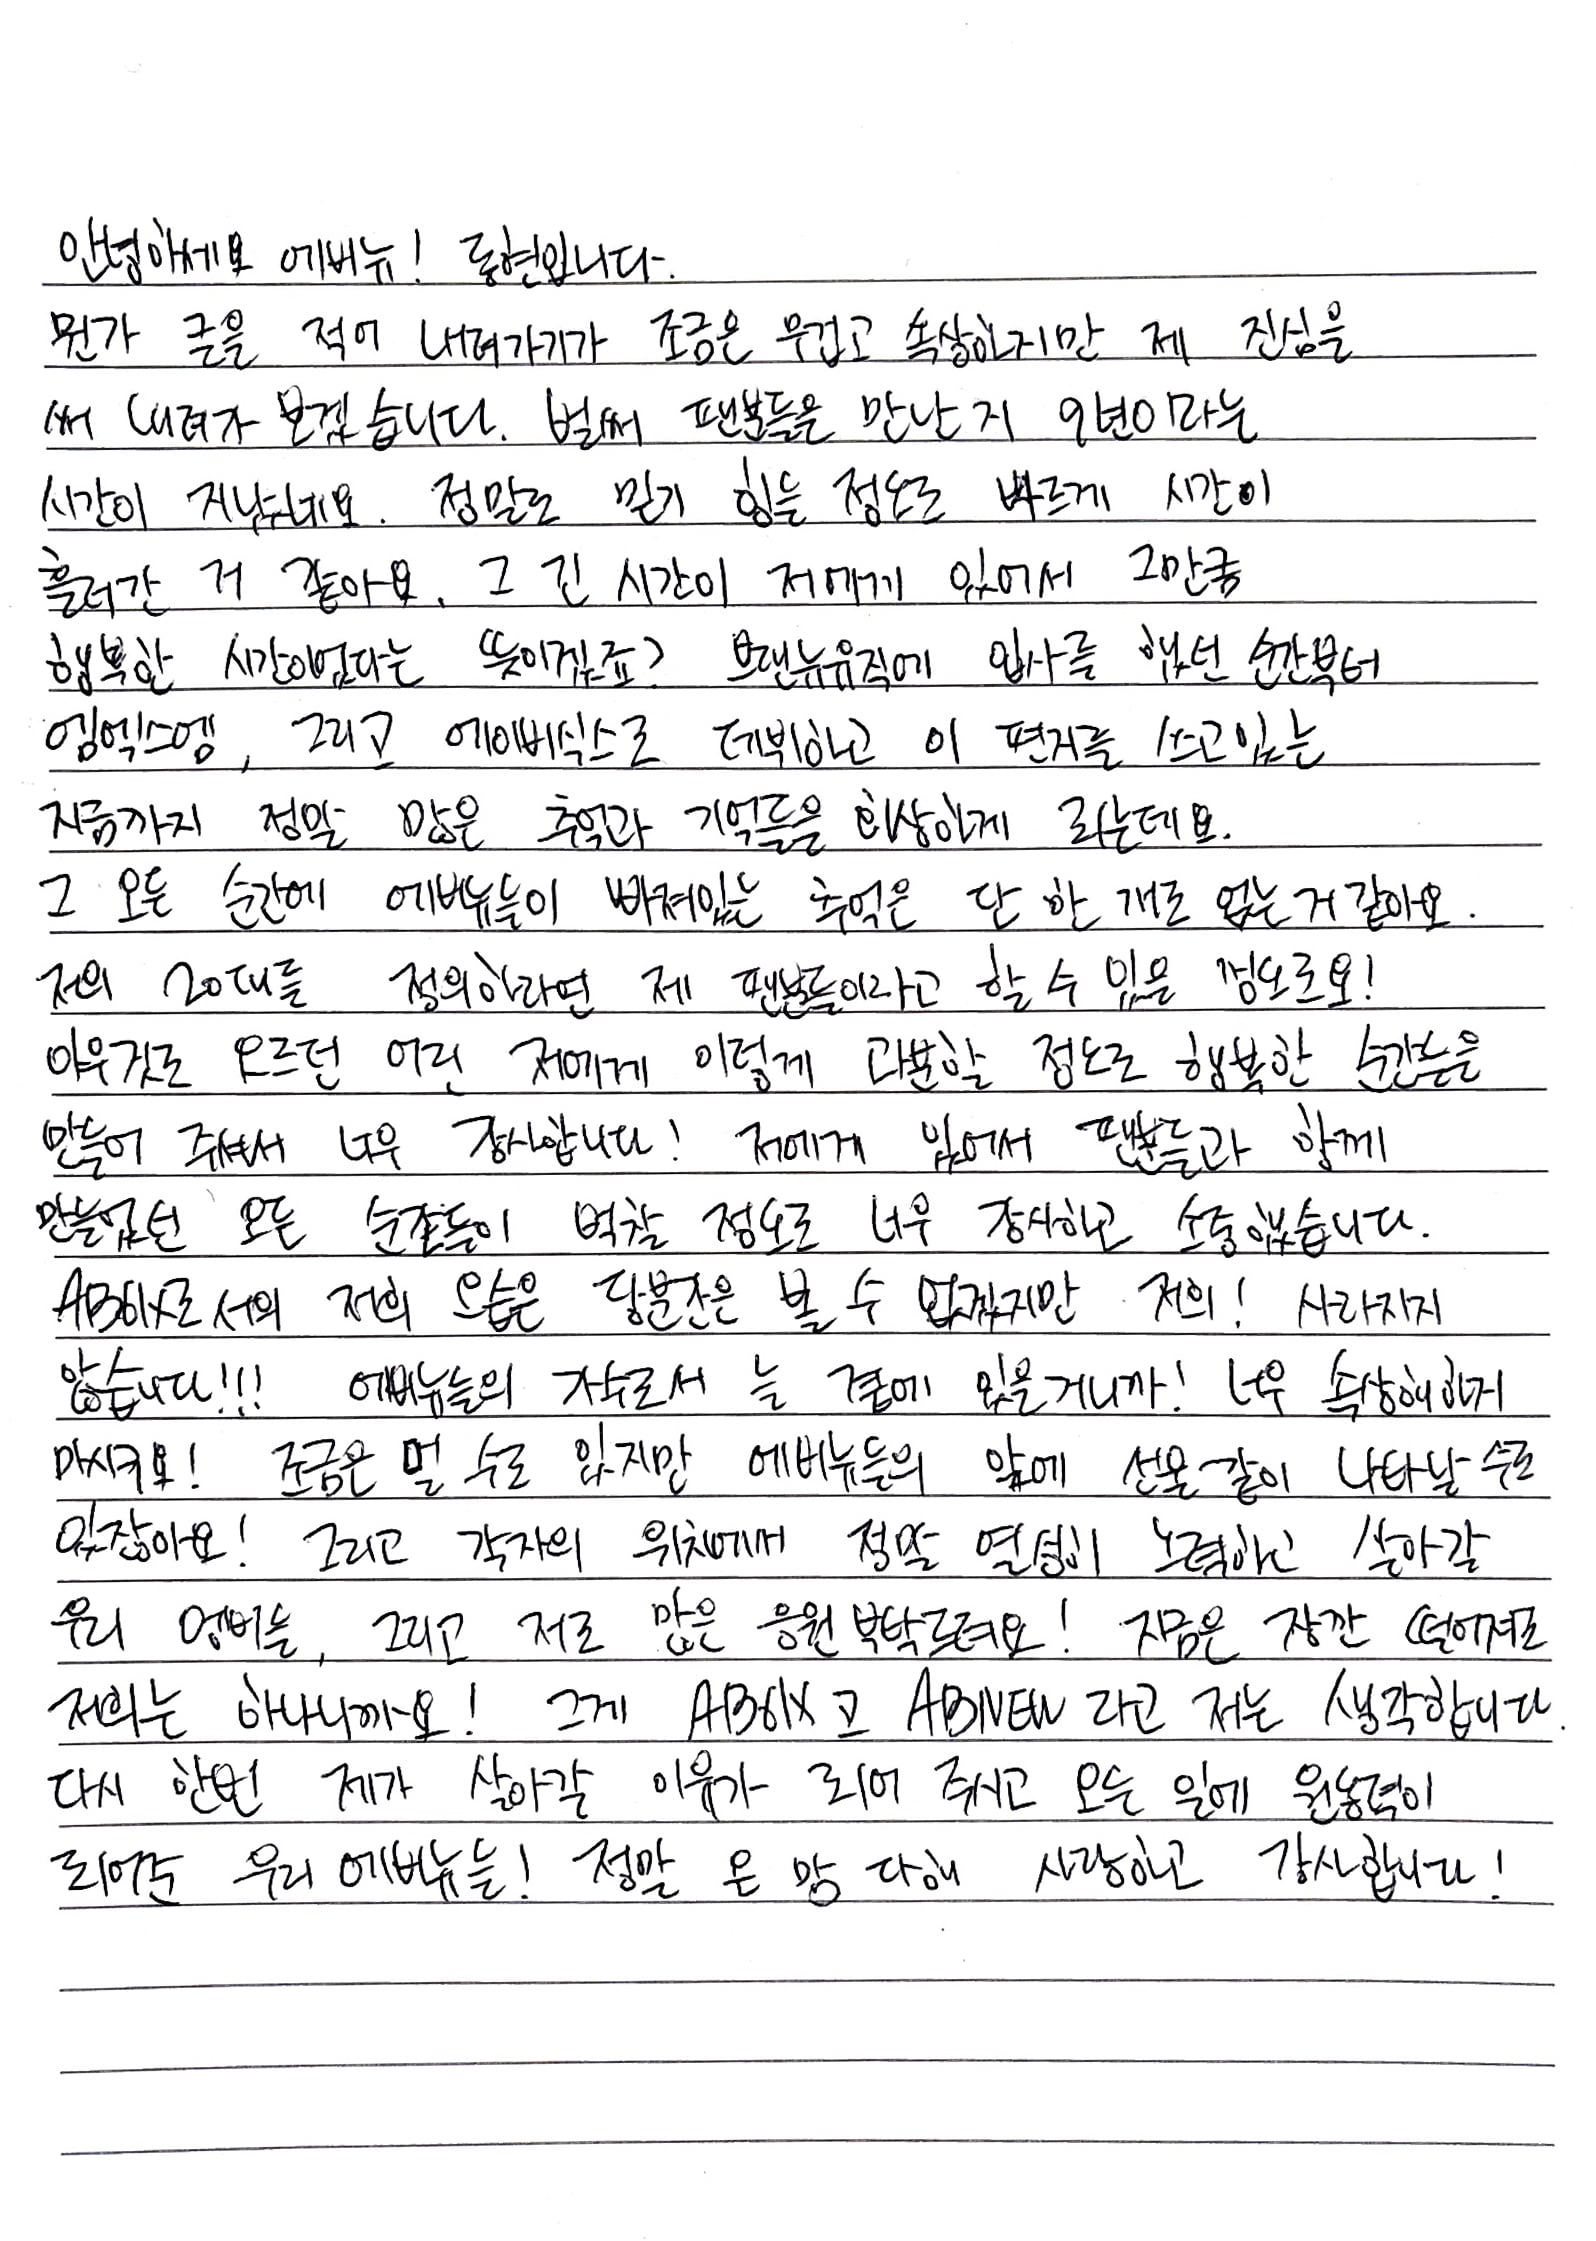 안녕하세요 에버뉴! 동현입니다.
뭔가 글을 적어 내려가기가 조금은 무겁고 속상하지만 제 진심을
써 내려가 보겠습니다. 벌써 팬분들을 만난지 9년이라는
시간이 지났네요. 정말로 믿기 힘들 정도로 빠르게 시간이
흘러간 거 같아요. 그 긴 시간이 저에게 있어서 그만큼
행복한 시간이었다는 뜻이겠죠? 브랜뉴뮤직에 입사를 했던 순간부터
엠엑스엠, 그리고 에이비식스로 데뷔하고 이 편지를 쓰고있는
지금까지 정말 많은 추억과 기억들을 회상하게 되는데요.
그 모든 순간에 에버뉴들이 빠져있는 추억은 단 한 개도 없는거 같아요.
저의 20대를 정의하라면 제 팬분들이라고 할 수 있을 정도로요!
아무것도 모르던 어린 저에게 이렇게 과분할 정도로 행복한 순간들을
만들어 주셔서 너무 감사합니다! 저에게 있어서 팬분들과 함께
만들었던 모든 순간들이 벅찰 정도로 너무 감사하고 소중했습니다.
AB6IX로서의 저희 모습은 당분간은 볼 수 없겠지만 저희! 사라지지
않습니다!!! 에버뉴들의 가수로서 늘 곁에 있을거니까! 너무 속상해하지
마시구요! 조금은 멀 수도 있지만 에버뉴들의 앞에 선물같이 나타날 수도
있잖아요! 그리고 각자의 위치에서 정말 열심히 노력하고 살아갈
우리 멤버들, 그리고 저도 많은 응원 부탁드려요! 지금은 잠깐 떨어져도
저희는 하나니까요! 그게 AB6IX고 ABNEW라고 저는 생각합니다.
다시 한번 제가 살아갈 이유가 되어 주시고 모든 일에 원동력이
되어준 우리 에버뉴들! 정말 온 맘 다해 사랑하고 감사합니다!